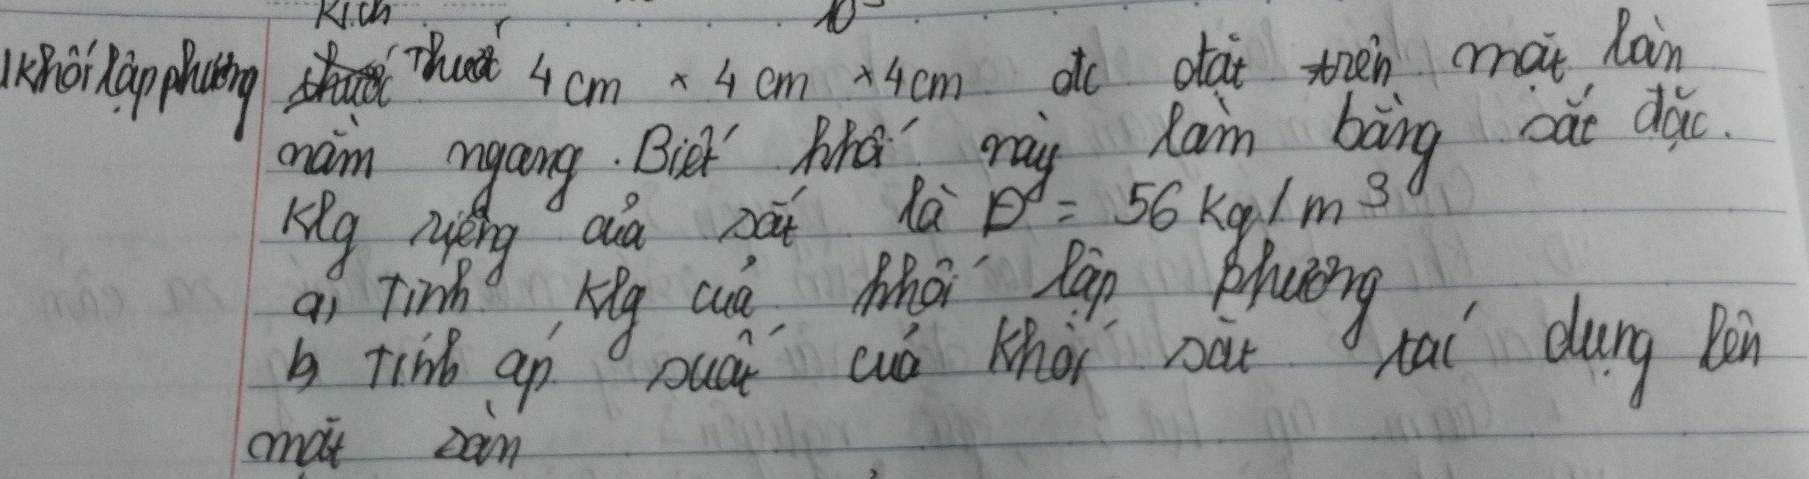 Kích
10
1 khối lập phương thước 4 cm × 4 cm × 4 cm đc đặt trên mặt sàn
nằm ngang. Biết khối này làm bằng sắt đặc.
Klg riêng của sắt là D = 56 kg/m³
a, Tính klg của khối lập phương
b, Tính áp suất của khối sắt tác dụng lên
mặt sàn